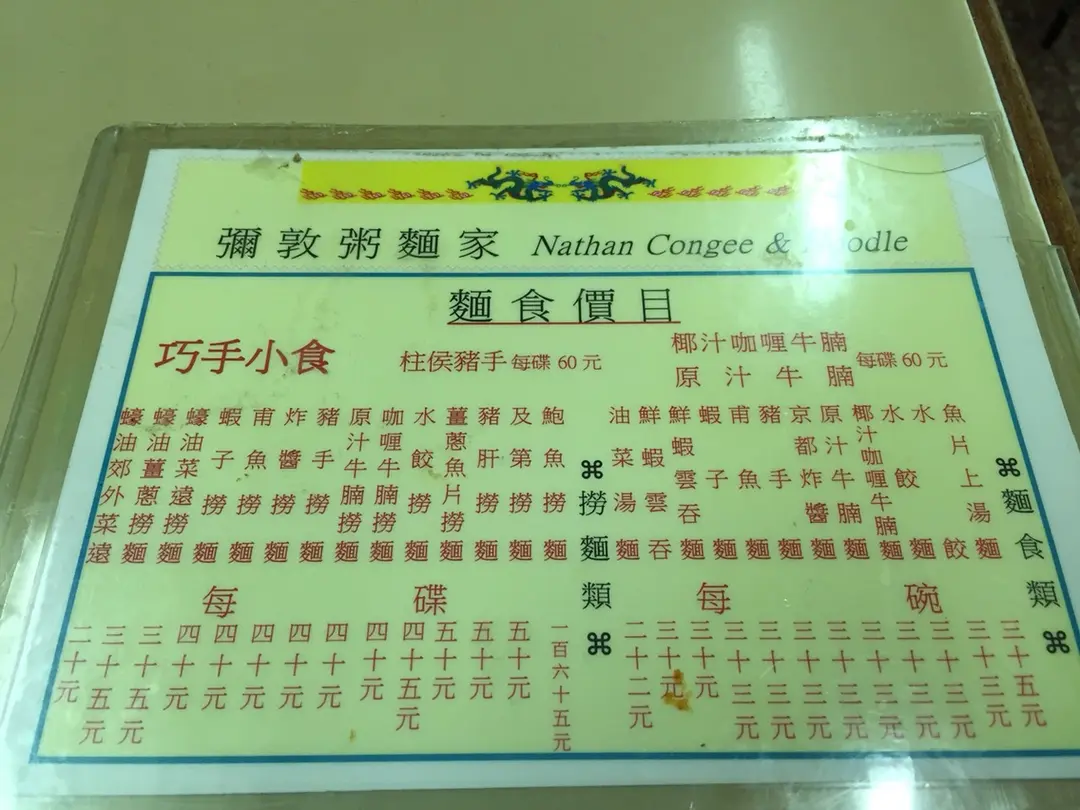 彌敦粥麵家 Nathan Congee &
麵食價目
巧手小食
柱侯豬手 每碟 60 元
椰汁咖喱牛腩
原汁牛腩
每碟 60 元
⌘麵食類⌘
魚片上湯麵
水餃
水餃麵
椰汁咖喱牛腩麵
原汁牛腩麵
京都炸醬麵
豬手麵
甫魚麵
蝦子麵
鮮蝦雲吞麵
鮮蝦雲吞
油菜湯麵
每碗
三十五元
三十三元
三十三元
三十三元
三十三元
三十三元
三十三元
三十三元
三十三元
三十元
三十元
二十二元
⌘撈麵類⌘
鮑魚撈麵
及第撈麵
豬肝撈麵
薑蔥魚片撈麵
水餃撈麵
咖喱牛腩撈麵
原汁牛腩撈麵
豬手撈麵
炸醬撈麵
甫魚撈麵
蝦子撈麵
蠔油菜遠撈麵
蠔油薑蔥撈麵
蠔油郊外菜遠
每碟
一百六十五元
五十元
五十元
五十元
四十五元
四十元
四十元
四十元
四十元
四十元
四十元
三十五元
三十五元
二十元